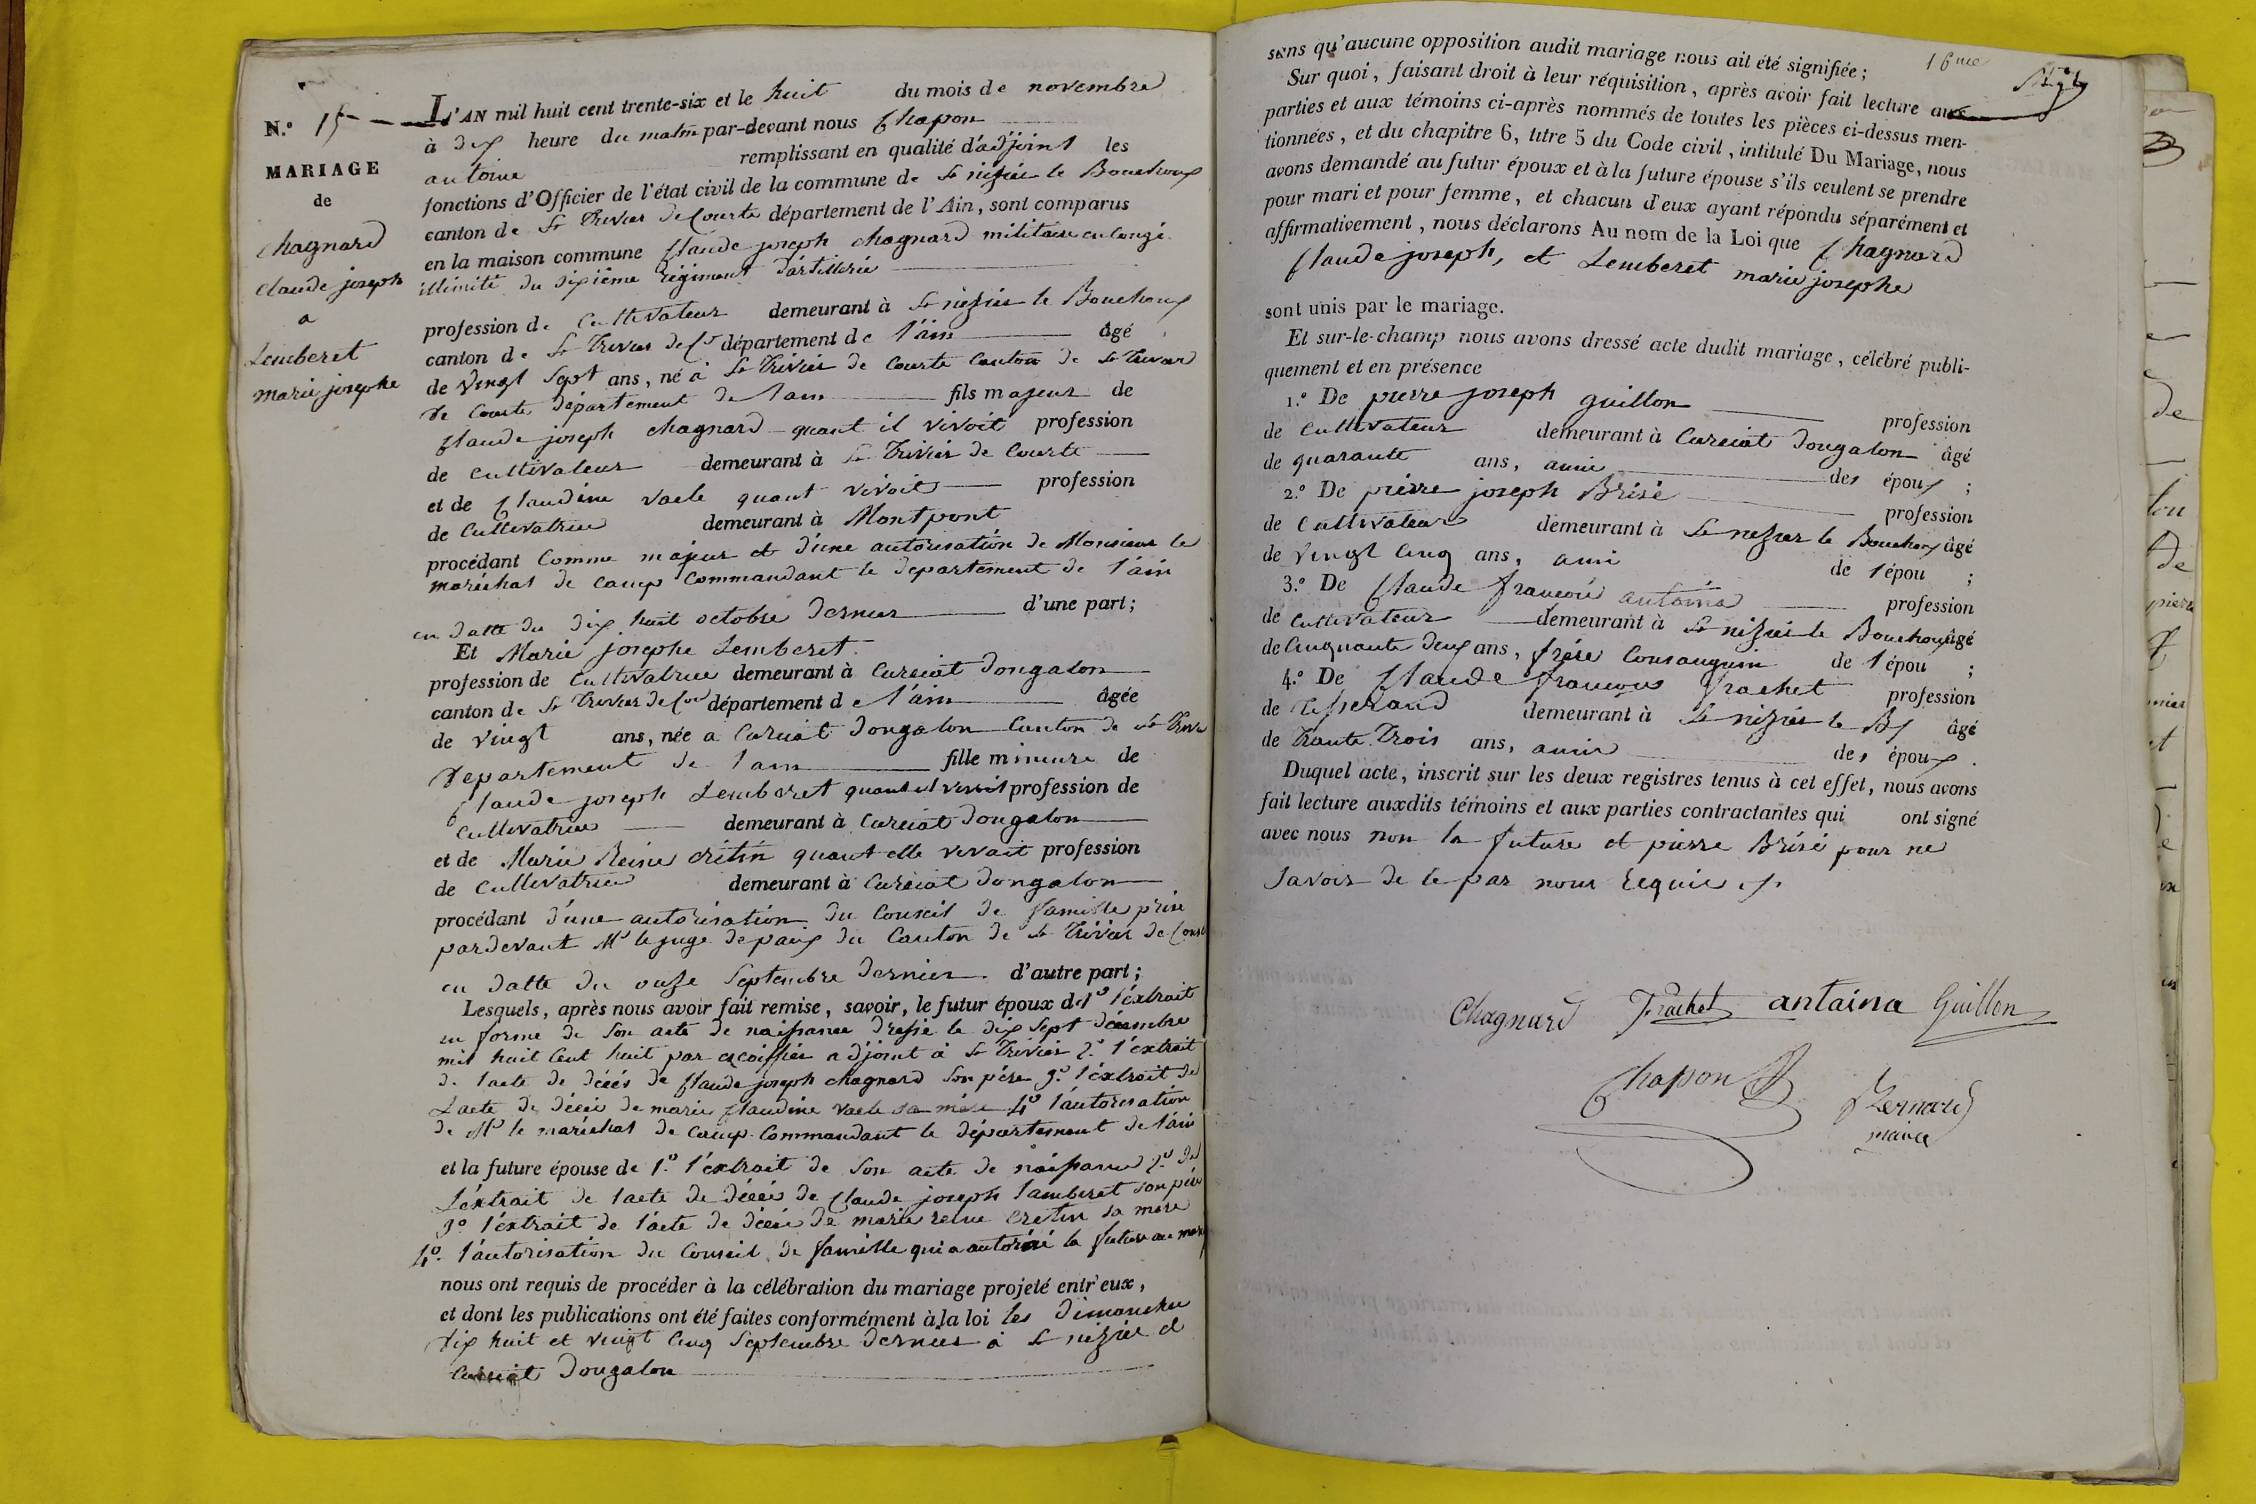 N.° 15
MARIAGE
de
Chagnard
claude joseph
a
Lemberet
marie josephe
L'AN mil huit cent trente-six et le huit du mois de novembre
à dix heure du matin par-devant nous Chapon
antoine remplissant en qualité d'adjoint les
fonctions d'Officier de l'état civil de la commune de St nizier le Bouchoux
canton de St Trivier de Courte département de l'Ain, sont comparus
en la maison commune Claude joseph chagnard militaire en congé
illimité du sixième régiment d'artillerie
profession de Cultivateur demeurant à St nizier le Bouchoux
canton de St Trivier de Cr département de l'ain âgé
de vingt sept ans, né à St Trivier de Courte Canton de St Trivier
de Courte département de l'ain fils majeur de
Claude joseph chagnard quant il vivoit profession
de cultivateur demeurant à St Trivier de Courte
et de Claudine vaele quant vivoit profession
de Cultivatrice demeurant à Montpont
procédant Comme majeur et d'une autorisation de Monsieur le
maréchal de camp Commandant le departement de l'ain
en datte du dix huit octobre dernier d'une part;
Et Marie josephe Lemberet
profession de Cultivatrice demeurant à Curciat dongalon
canton de St Trivier de Cour département de l'ain âgée
de vingt ans, née a Curciat dongalon Canton de St Trivier
departement de l'ain fille mineure de
Claude joseph Lemberet quant il vivoit profession de
Cultivatrice demeurant à Curciat dongalon
et de Marie Reine crétin quant elle vivait profession
de Cultivatrice demeurant à Curciat dongalon
procédant d'une autorisation du Conseil de famille prise
pardevant Mr le juge de paix du Canton de St Trivier de Cour
en datte du onze Septembre dernier d'autre part;
Lesquels, après nous avoir fait remise, savoir, le futur époux de 1° l'éxtrait
en forme de Son acte de naissance dressé le dix Sept décembre
mil huit Cent huit par adjoint à St Trivier 2° l'extrait
de l'acte de décès de Claude joseph chagnard Son père 3° l'éxtrait de
L'acte de décès de marie Claudine vaele sa mère 4° l'autorisation
de Mr le maréchal de camp Commandant le département de l'ain
et la future épouse de 1° l'éxtrait de Son acte de naissance 2° de
L'éxtrait de l'acte de décès de Claude joseph Lamberet son père
3° l'éxtrait de l'acte de décès de marie reine Cretin sa mere
4° l'autorisation du Conseil de famille qui a autorisé la future au
nous ont requis de procéder à la célébration du mariage projeté entr'eux,
et dont les publications ont été faites conformément à la loi les dimanches
dix huit et vingt Cinq Septembre dernier à St nizier et
Curciat Dongalon
16me
sans qu'aucune opposition audit mariage nous ait été signifiée;
Sur quoi, faisant droit à leur réquisition, après avoir fait lecture aux
parties et aux témoins ci-après nommés de toutes les pièces ci-dessus men-
tionnées, et du chapitre 6, titre 5 du Code civil, intitulé Du Mariage, nous
avons demandé au futur époux et à la future épouse s'ils veulent se prendre
pour mari et pour femme, et chacun d'eux ayant répondu séparément et
affirmativement, nous déclarons Au nom de la Loi que Chagnard
Claude joseph, et Lemberet marie josephe
sont unis par le mariage.
Et sur-le-champ nous avons dressé acte dudit mariage, célébré publi-
quement et en présence
1.° De pierre joseph guillon profession
de Cultivateur demeurant à Curciat dongalon âgé
de quarante ans, amie des époux;
2.° De pierre joseph Brisé profession
de Cultivateur demeurant à St nizier le Bouchoux âgé
de vingt Cinq ans, ami de l'épou;
3.° De Claude francois antoina profession
de Cultivateur demeurant à St nizier le Bouchoux âgé
de Cinquante deux ans, frére Consanguin de l'épou;
4.° De Claude francois frachet profession
de demeurant à St nizier le Bx âgé
de trante trois ans, amie des époux.
Duquel acte, inscrit sur les deux registres tenus à cet effet, nous avons
fait lecture auxdits témoins et aux parties contractantes qui ont signé
avec nous non la future et pierre Brisé pour ne
Savoir de le par nous requie
Chagnard Frachet antaina Guillon
Chapon Bernard
maire